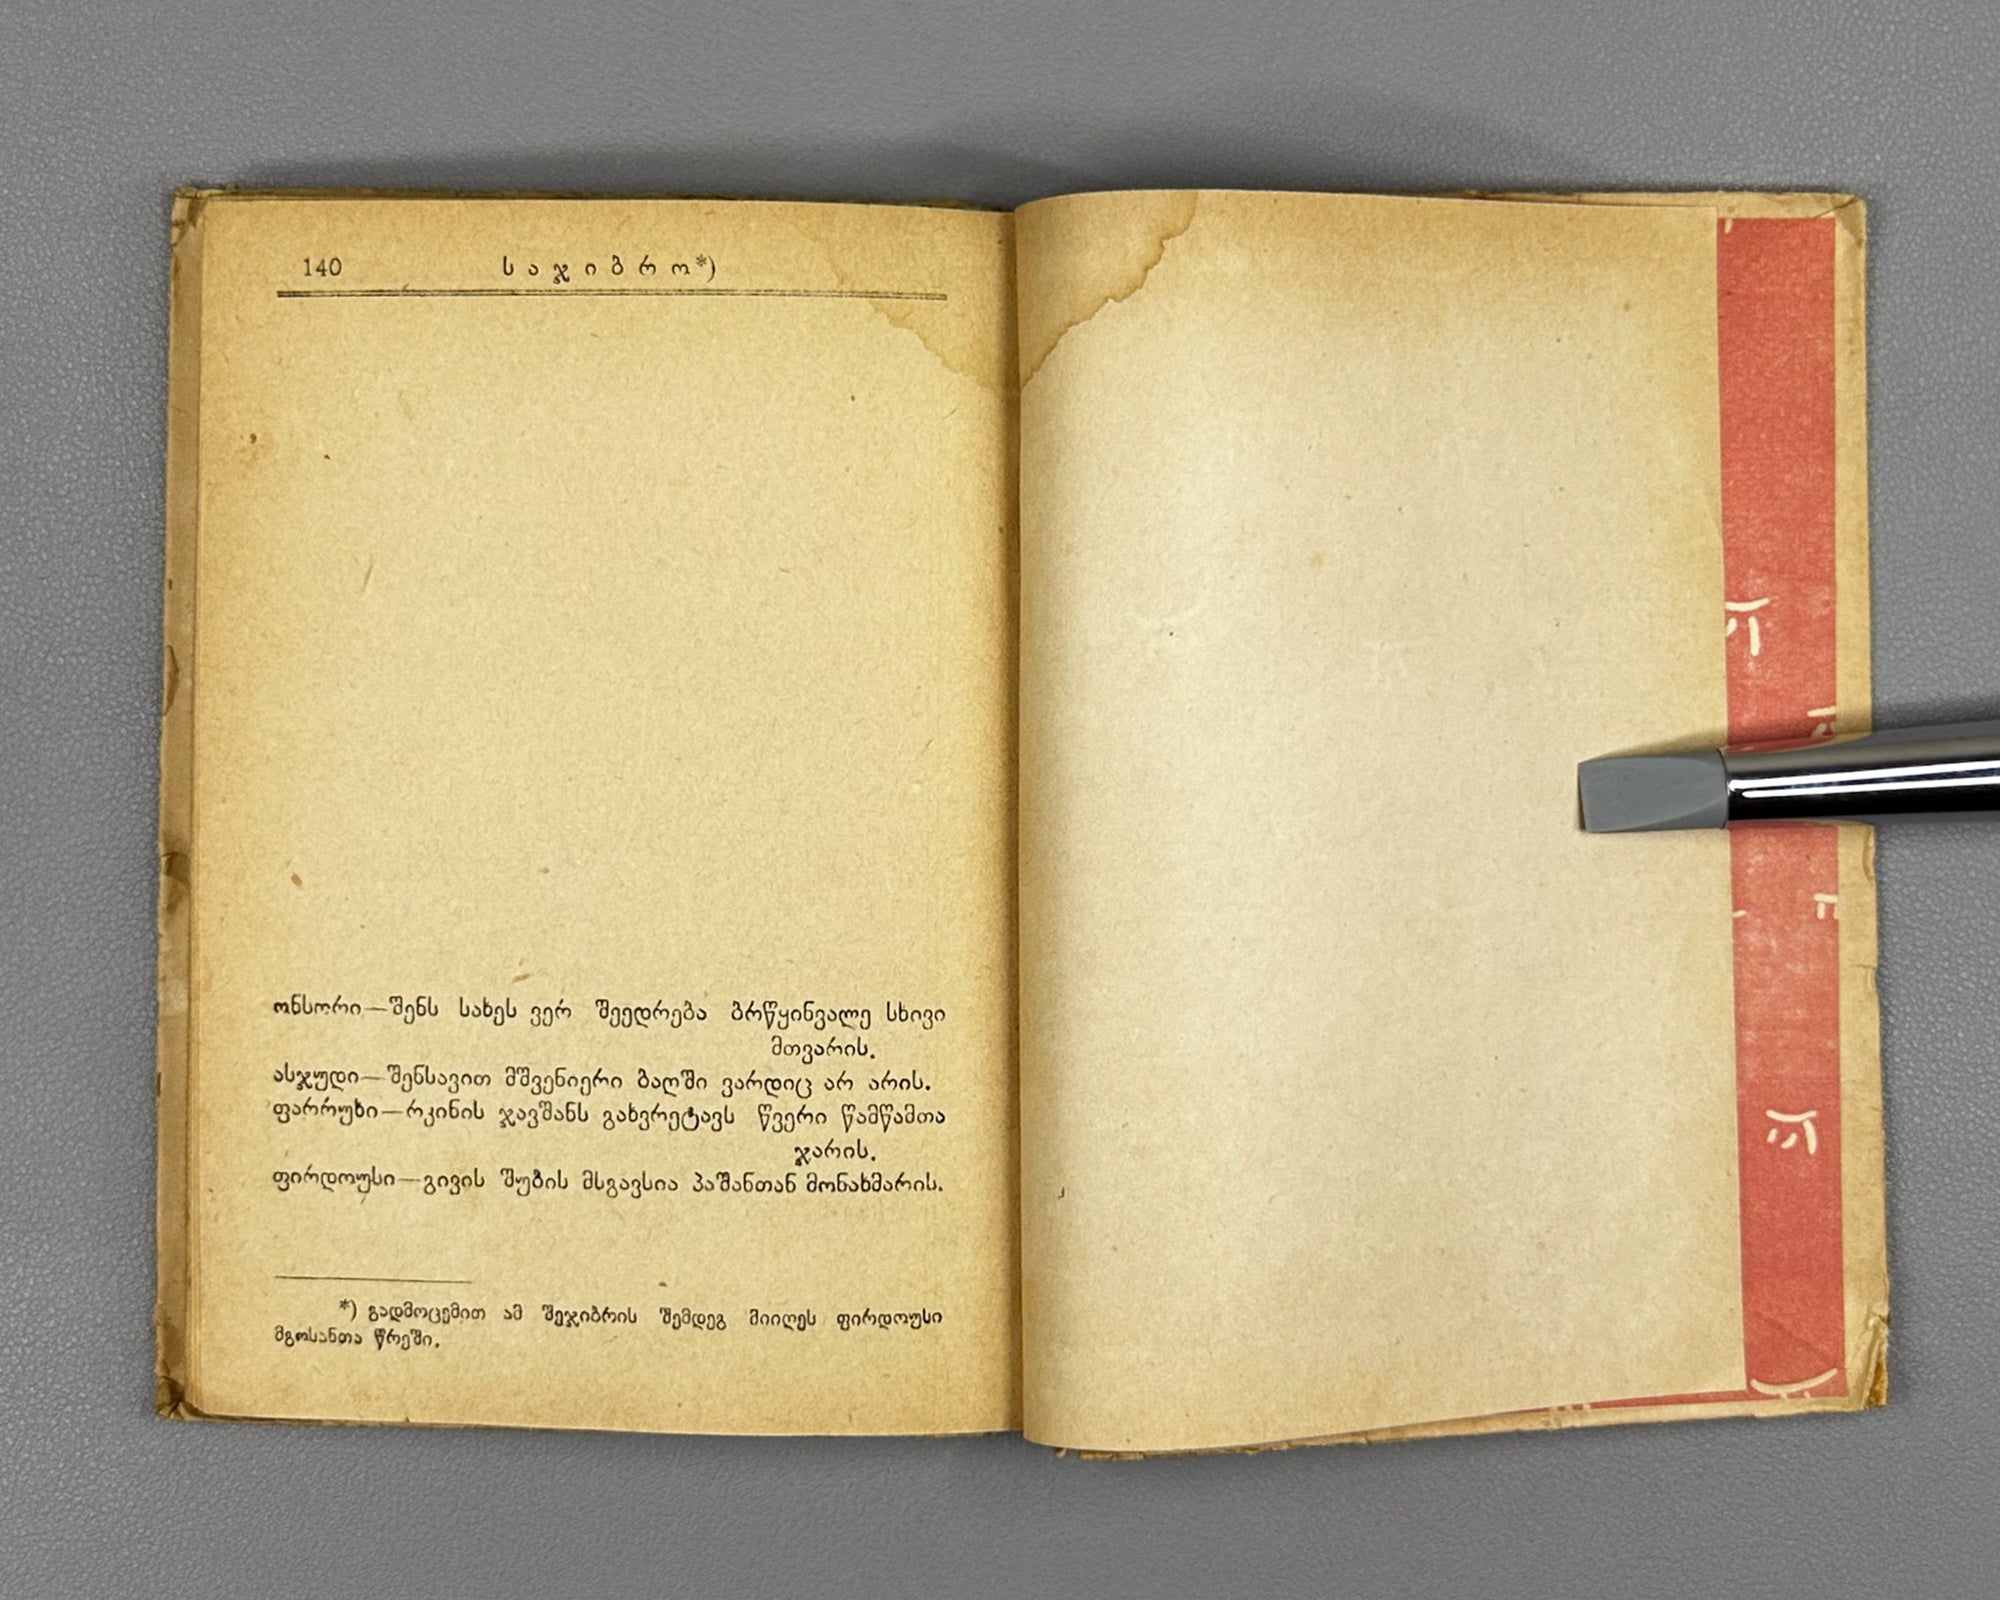 140 საჯიბრო*)
ონსორი—შენს სახეს ვერ შეედრება ბრწყინვალე სხივი
მთვარის.
ასჯუდი—შენსავით მშვენიერი ბაღში ვარდიც არ არის.
ფარრუხი—რკინის ჯავშანს გახვრეტავს წვერი წამწამთა
ჯარის.
ფირდოუსი—გივის შუბის მსგავსია პაშანთან მონახმარის.
*) გადმოცემით ამ შეჯიბრის შემდეგ მიიღეს ფირდოუსი
მგოსანთა წრეში.